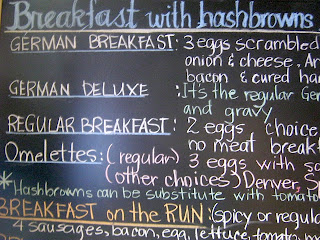 Breakfast with hashbrowns
GERMAN BREAKFAST: 3 eggs scrambled
onion & cheese. An
bacon & cured ha
GERMAN DELUXE : It's the regular Ger
and gravy
REGULAR BREAKFAST: 2 eggs choice
no meat breakf
Omelettes: (regular) 3 eggs with sa
(other choices) Denver, Sp
*Hashbrowns can be substitute with tomato
BREAKFAST on the RUN: Spicy or regula
4 sausages, bacon, egg, lettuce, tomato, m